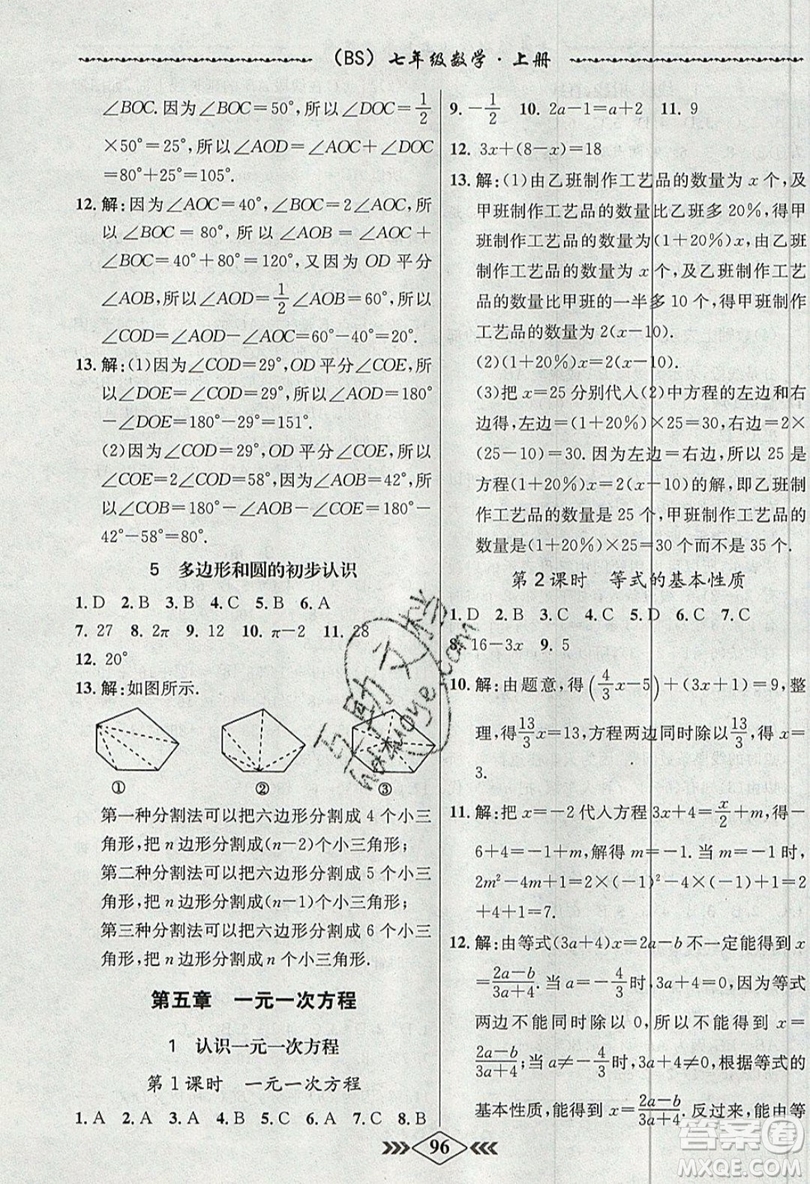 (BS) 七年级数学·上册
∠BOC. 因为∠BOC=50°, 所以∠DOC=1/2
×50°=25°, 所以∠AOD=∠AOC+∠DOC
=80°+25°=105°.
12. 解: 因为∠AOC=40°, ∠BOC=2∠AOC, 所
以∠BOC=80°, 所以∠AOB=∠AOC+
∠BOC=40°+80°=120°, 又因为 OD 平分
∠AOB, 所以∠AOD=1/2∠AOB=60°, 所以
∠COD=∠AOD-∠AOC=60°-40°=20°.
13. 解: (1)因为∠COD=29°, OD 平分∠COE, 所
以∠DOE=∠COD=29°, 所以∠AOD=180°
-∠DOE=180°-29°=151°.
(2)因为∠COD=29°, OD 平分∠COE, 所以
∠COE=2∠COD=58°, 因为∠AOB=42°, 所
以∠BOC=180°-∠AOB-∠COE=180°-
42°-58°=80°.
5 多边形和圆的初步认识
1. D 2. B 3. B 4. C 5. B 6. A
7. 27 8. 2π 9. 12 10. π-2 11. 28
12. 20°
13. 解: 如图所示.
① ② ③
第一种分割法可以把六边形分割成 4 个小三
角形, 把 n 边形分割成(n-2)个小三角形;
第二种分割法可以把六边形分割成 5 个小三
角形, 把 n 边形分割成(n-1)个小三角形;
第三种分割法可以把六边形分割成 6 个小三
角形, 把 n 边形分割成 n 个小三角形.
第五章 一元一次方程
1 认识一元一次方程
第 1 课时 一元一次方程
1. A 2. A 3. A 4. A 5. A 6. C 7. B 8. B
9. -1/2 10. 2a-1=a+2 11. 9
12. 3x+(8-x)=18
13. 解: (1)由乙班制作工艺品的数量为 x 个, 及
甲班制作工艺品的数量比乙班多 20%, 得甲
班制作工艺品的数量为(1+20%)x, 由甲
班制作工艺品的数量为 x 个, 及乙班制作工
艺品的数量比甲班的一半多 10 个, 得甲班制
作工艺品的数量为 2(x-10).
(2)(1+20%)x=2(x-10).
(3)把 x=25 分别代人(2)中方程的左边和右
边, 得, 左边=(1+20%)×25=30, 右边=2×
(25-10)=30, 因为左边=右边, 所以 25 是
方程(1+20%)x=2(x-10)的解, 即乙班制
作工艺品的数量是 25 个, 甲班制作工艺品的
数量是(1+20%)×25=30 个而不是 35 个.
第 2 课时 等式的基本性质
1. D 2. B 3. C 4. C 5. C 6. D 7. C
8. 16-3x 9. 5
10. 解: 由题意, 得(4/3x-5)+(3x+1)=9, 整
理, 得13/3x=13, 方程两边同时除以13/3, 得 x=
3.
11. 解: 把 x=-2 代人方程 3x+4=x/2+m, 得-
6+4=-1+m, 解得 m=-1. 当 m=-1 时,
2m²-4m+1=2×(-1)²-4×(-1)+1=2
+4+1=7.
12. 解: 由等式(3a+4)x=2a-b 不一定能得到 x
=(2a-b)/(3a+4). 当 a=-4/3时, 3a+4=0, 因为等式
两边不能同时除以 0, 所以不一定能得到 x=
(2a-b)/(3a+4); 当 a≠-4/3时, 3a+4≠0, 根据等式的
基本性质, 由 x=(2a-b)/(3a+4)能得到(3a+4)x=2a-b, 即可由等
96
互助文档
hehuoye.com
答案圈
MXQE.COM